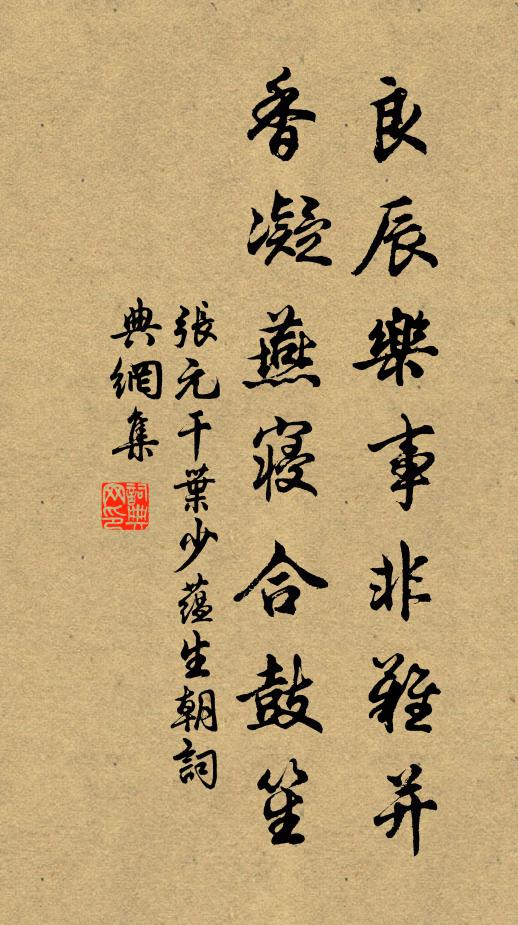 良辰樂事非難并
香凝燕寢合鼓笙
張元干葉少蘊生朝詞
典網集
詞典網印